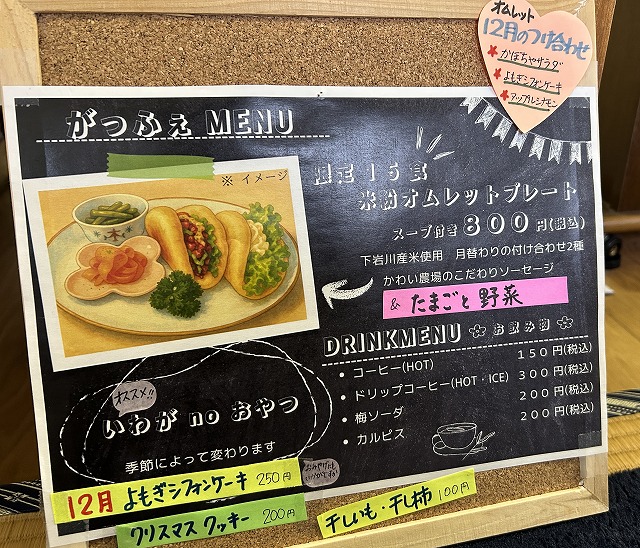 オムレット
12月のつけ合わせ
★かぼちゃサラダ
★よもぎシフォンケーキ
★アップルシナモン
がっふぇ MENU
※ イメージ
限定 15食
米粉オムレットプレート
スープ付き 800円(税込)
下岩川産米使用 月替わりの付け合わせ2種
かわい農場のこだわりソーセージ
& たまごと野菜
DRINKMENU お飲み物
• コーヒー(HOT) 150円(税込)
• ドリップコーヒー(HOT・ICE) 300円(税込)
• 梅ソーダ 200円(税込)
• カルピス 200円(税込)
オススメ!!
いわが no おやつ
季節によって変わります
12月 よもぎシフォンケーキ 250円
クリスマス クッキー 200円
干しいも・干し柿 100円